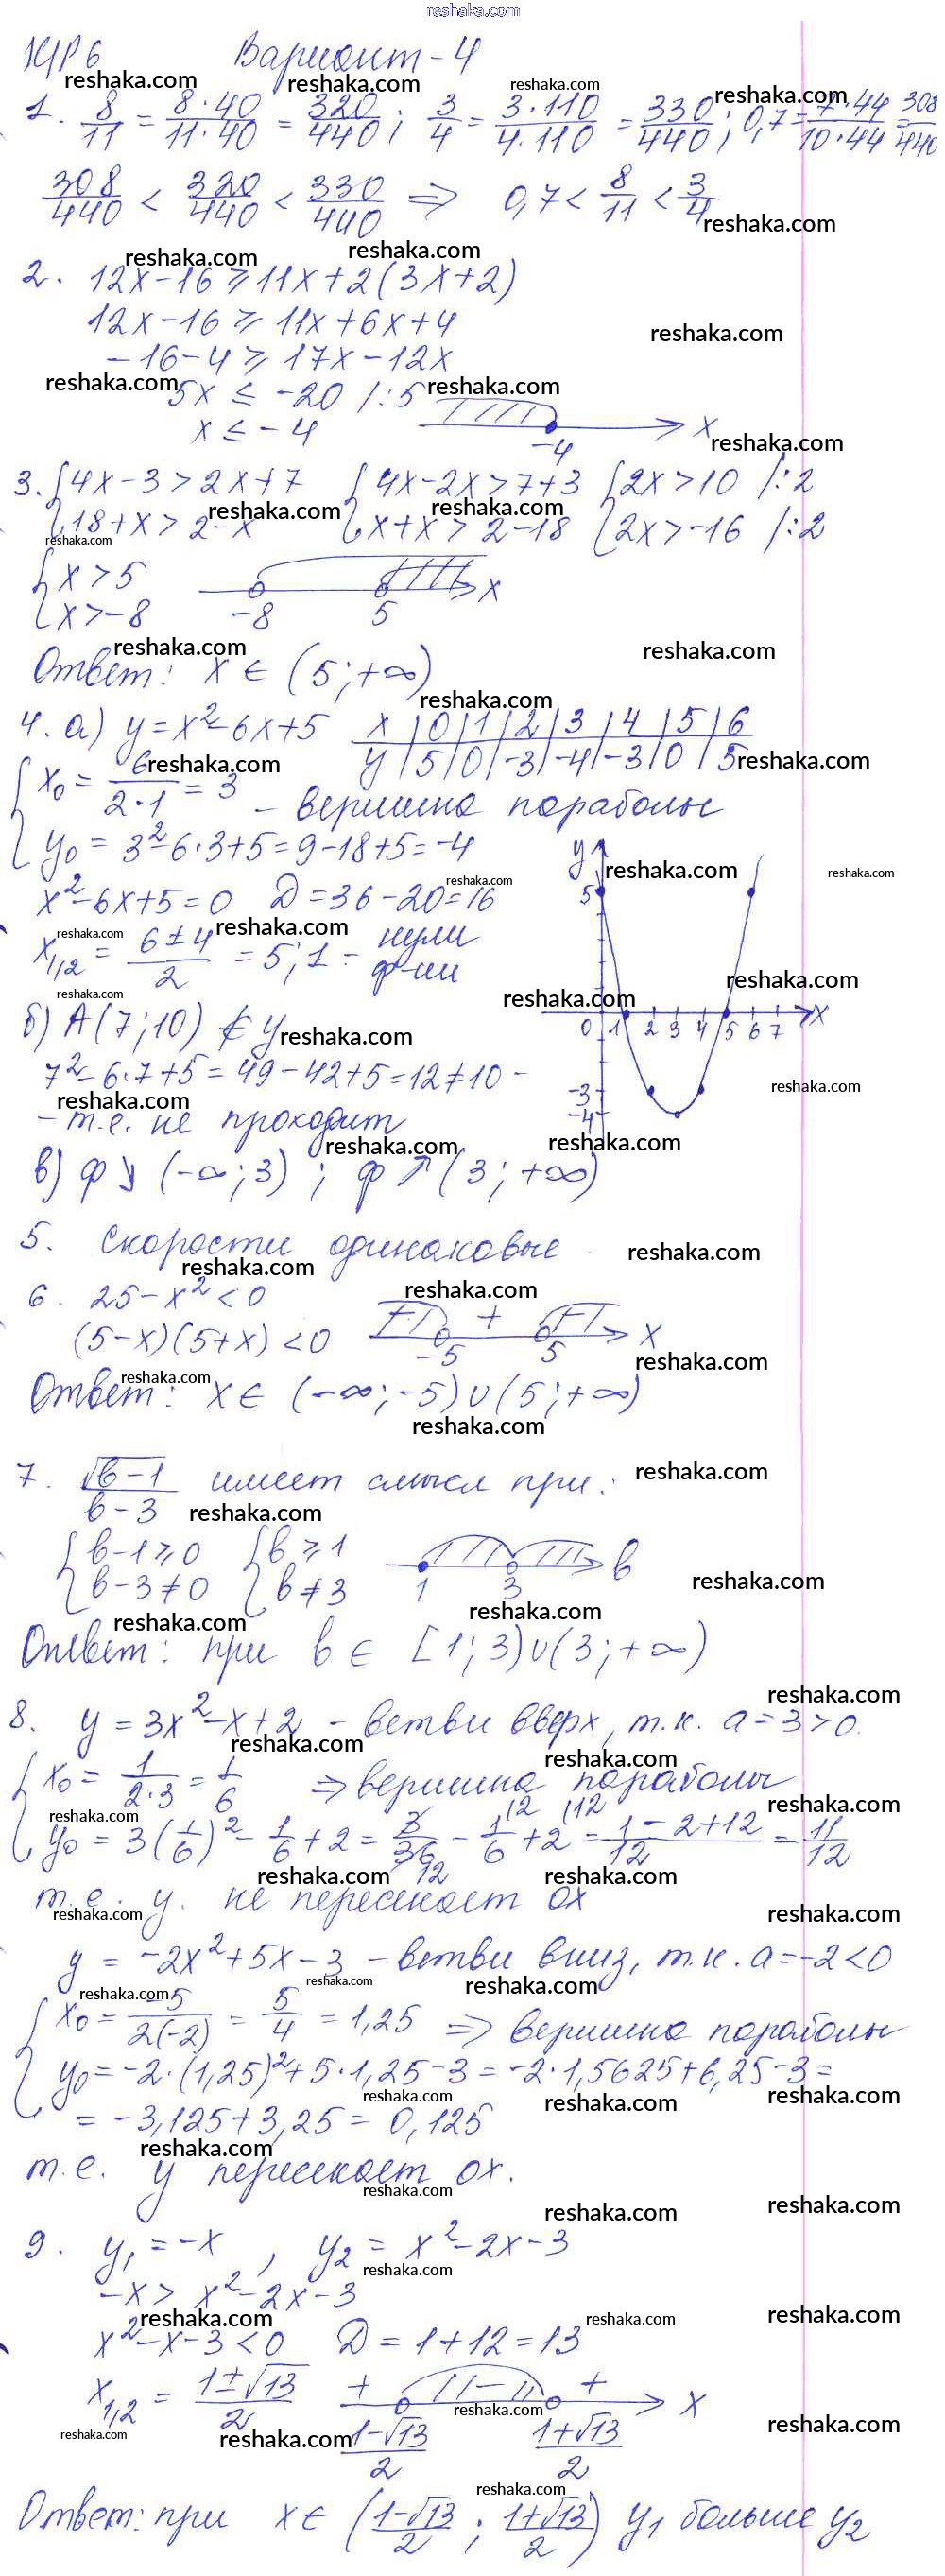 reshaka.com
К/Р 6 Вариант - 4
1. 8/11 = 8·40/11·40 = 320/440; 3/4 = 3·110/4·110 = 330/440; 0,7 = 7·44/10·44 = 308/440
308/440 < 320/440 < 330/440 ⇒ 0,7 < 8/11 < 3/4
2. 12x-16 ≥ 11x+2(3x+2)
12x-16 ≥ 11x+6x+4
-16-4 ≥ 17x-12x
5x ≤ -20 /:5
x ≤ -4
-4 x
3. {4x-3 > 2x+7 {4x-2x > 7+3 {2x > 10 /:2
{18+x > 2-x {x+x > 2-18 {2x > -16 /:2
{x > 5
{x > -8
-8 5 x
Ответ: x ∈ (5; +∞)
4. а) y = x²-6x+5
x | 0 | 1 | 2 | 3 | 4 | 5 | 6
y | 5 | 0 | -3 | -4 | -3 | 0 | 5
{x₀ = 6/2·1 = 3
{y₀ = 3²-6·3+5 = 9-18+5 = -4
- вершина параболы
x²-6x+5 = 0 D = 36-20 = 16
x₁,₂ = 6±4/2 = 5; 1 - нули ф-ии
y 5 0 1 2 3 4 5 6 7 x -3 -4
б) A(7; 10) ∉ y
7²-6·7+5 = 49-42+5 = 12 ≠ 10 -
- т.е. не проходит
в) ф ↘ (-∞; 3) ; ф ↗ (3; +∞)
5. Скорости одинаковые.
6. 25-x² < 0
(5-x)(5+x) < 0
- + - -5 5 x
Ответ: x ∈ (-∞; -5) ∪ (5; +∞)
7. √b-1/b-3 имеет смысл при:
{b-1 ≥ 0 {b ≥ 1
{b-3 ≠ 0 {b ≠ 3
1 3 b
Ответ: при b ∈ [1; 3) ∪ (3; +∞)
8. y = 3x²-x+2 - ветви вверх, т.к. a = 3 > 0.
{x₀ = 1/2·3 = 1/6 ⇒ вершина параболы
{y₀ = 3(1/6)² - 1/6 + 2 = 3/36 - 1/6 + 2 = 1-2+12/12 = 11/12
т.е. y не пересекает ox
y = -2x²+5x-3 - ветви вниз, т.к. a = -2 < 0
{x₀ = -5/2(-2) = 5/4 = 1,25 ⇒ вершина параболы
{y₀ = -2·(1,25)²+5·1,25-3 = -2·1,5625+6,25-3 =
= -3,125+3,25 = 0,125
т.е. y пересекает ox.
9. y₁ = -x , y₂ = x²-2x-3
-x > x²-2x-3
x²-x-3 < 0 D = 1+12 = 13
x₁,₂ = 1±√13/2
+ - + 1-√13/2 1+√13/2 x
Ответ: при x ∈ (1-√13/2; 1+√13/2) y₁ больше y₂